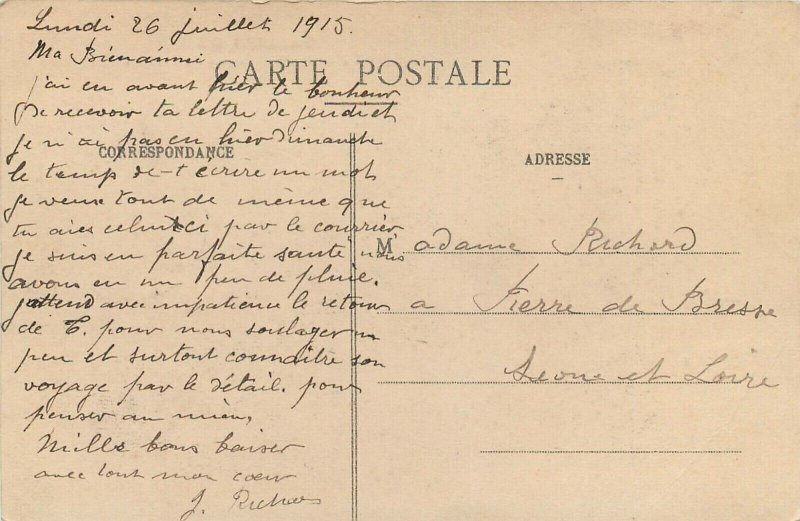 Lundi 26 juillet 1915.
Ma Bienaimée
CARTE POSTALE
j'ai eu avant hier le bonheur
de recevoir ta lettre de jeudi et
je n'ai pas eu hier Dimanche
CORRESPONDANCE
le temps de t'écrire un mot
je veux tout de même que
tu aies celui ci par le courrier
je suis en parfaite santé nous
avons eu un peu de pluie.
j'attend avec impatience le retour
de C. pour nous soulager un
peu et surtout connaître son
voyage par le détail. pour
penser au mien,
Mille bons baiser
avec tout mon cœur
J. Richard
ADRESSE
Madame Richard
a Pierre de Bresse
Saone et Loire